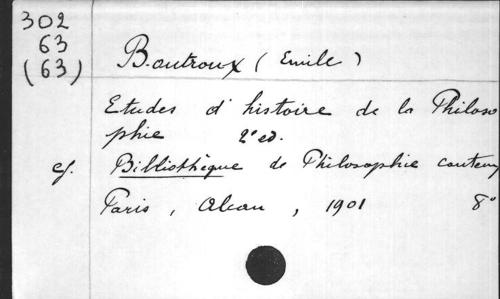 302
63
(63)
Boutroux (Emile)
Etudes d'histoire de la Philoso
phie 2e ed.
cf. Bibliothèque de Philosophie contemp
Paris, Alcan, 1901 8°